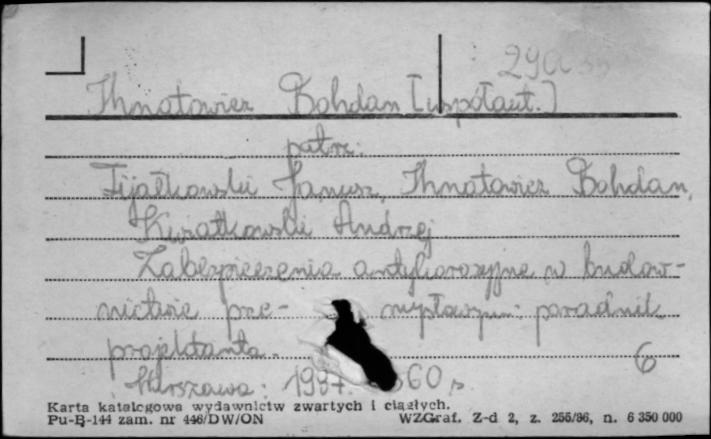 Ihnatowicz Bohdan [współaut.]
patrz:
Fijałkowski Janusz, Ihnatowicz Bohdan,
Kwiatkowski Andrzej
Zabezpieczenia antykorozyjne w budow-
nictwie prze- mysłowym: poradnik
projektanta. 6
Warszawa: 60 s.
Karta katalogowa wydawnictw zwartych i ciągłych.
Pu-B-144 zam. nr 446/DW/ON WZGraf. Z-d 2, z. 255/86, n. 6 350 000